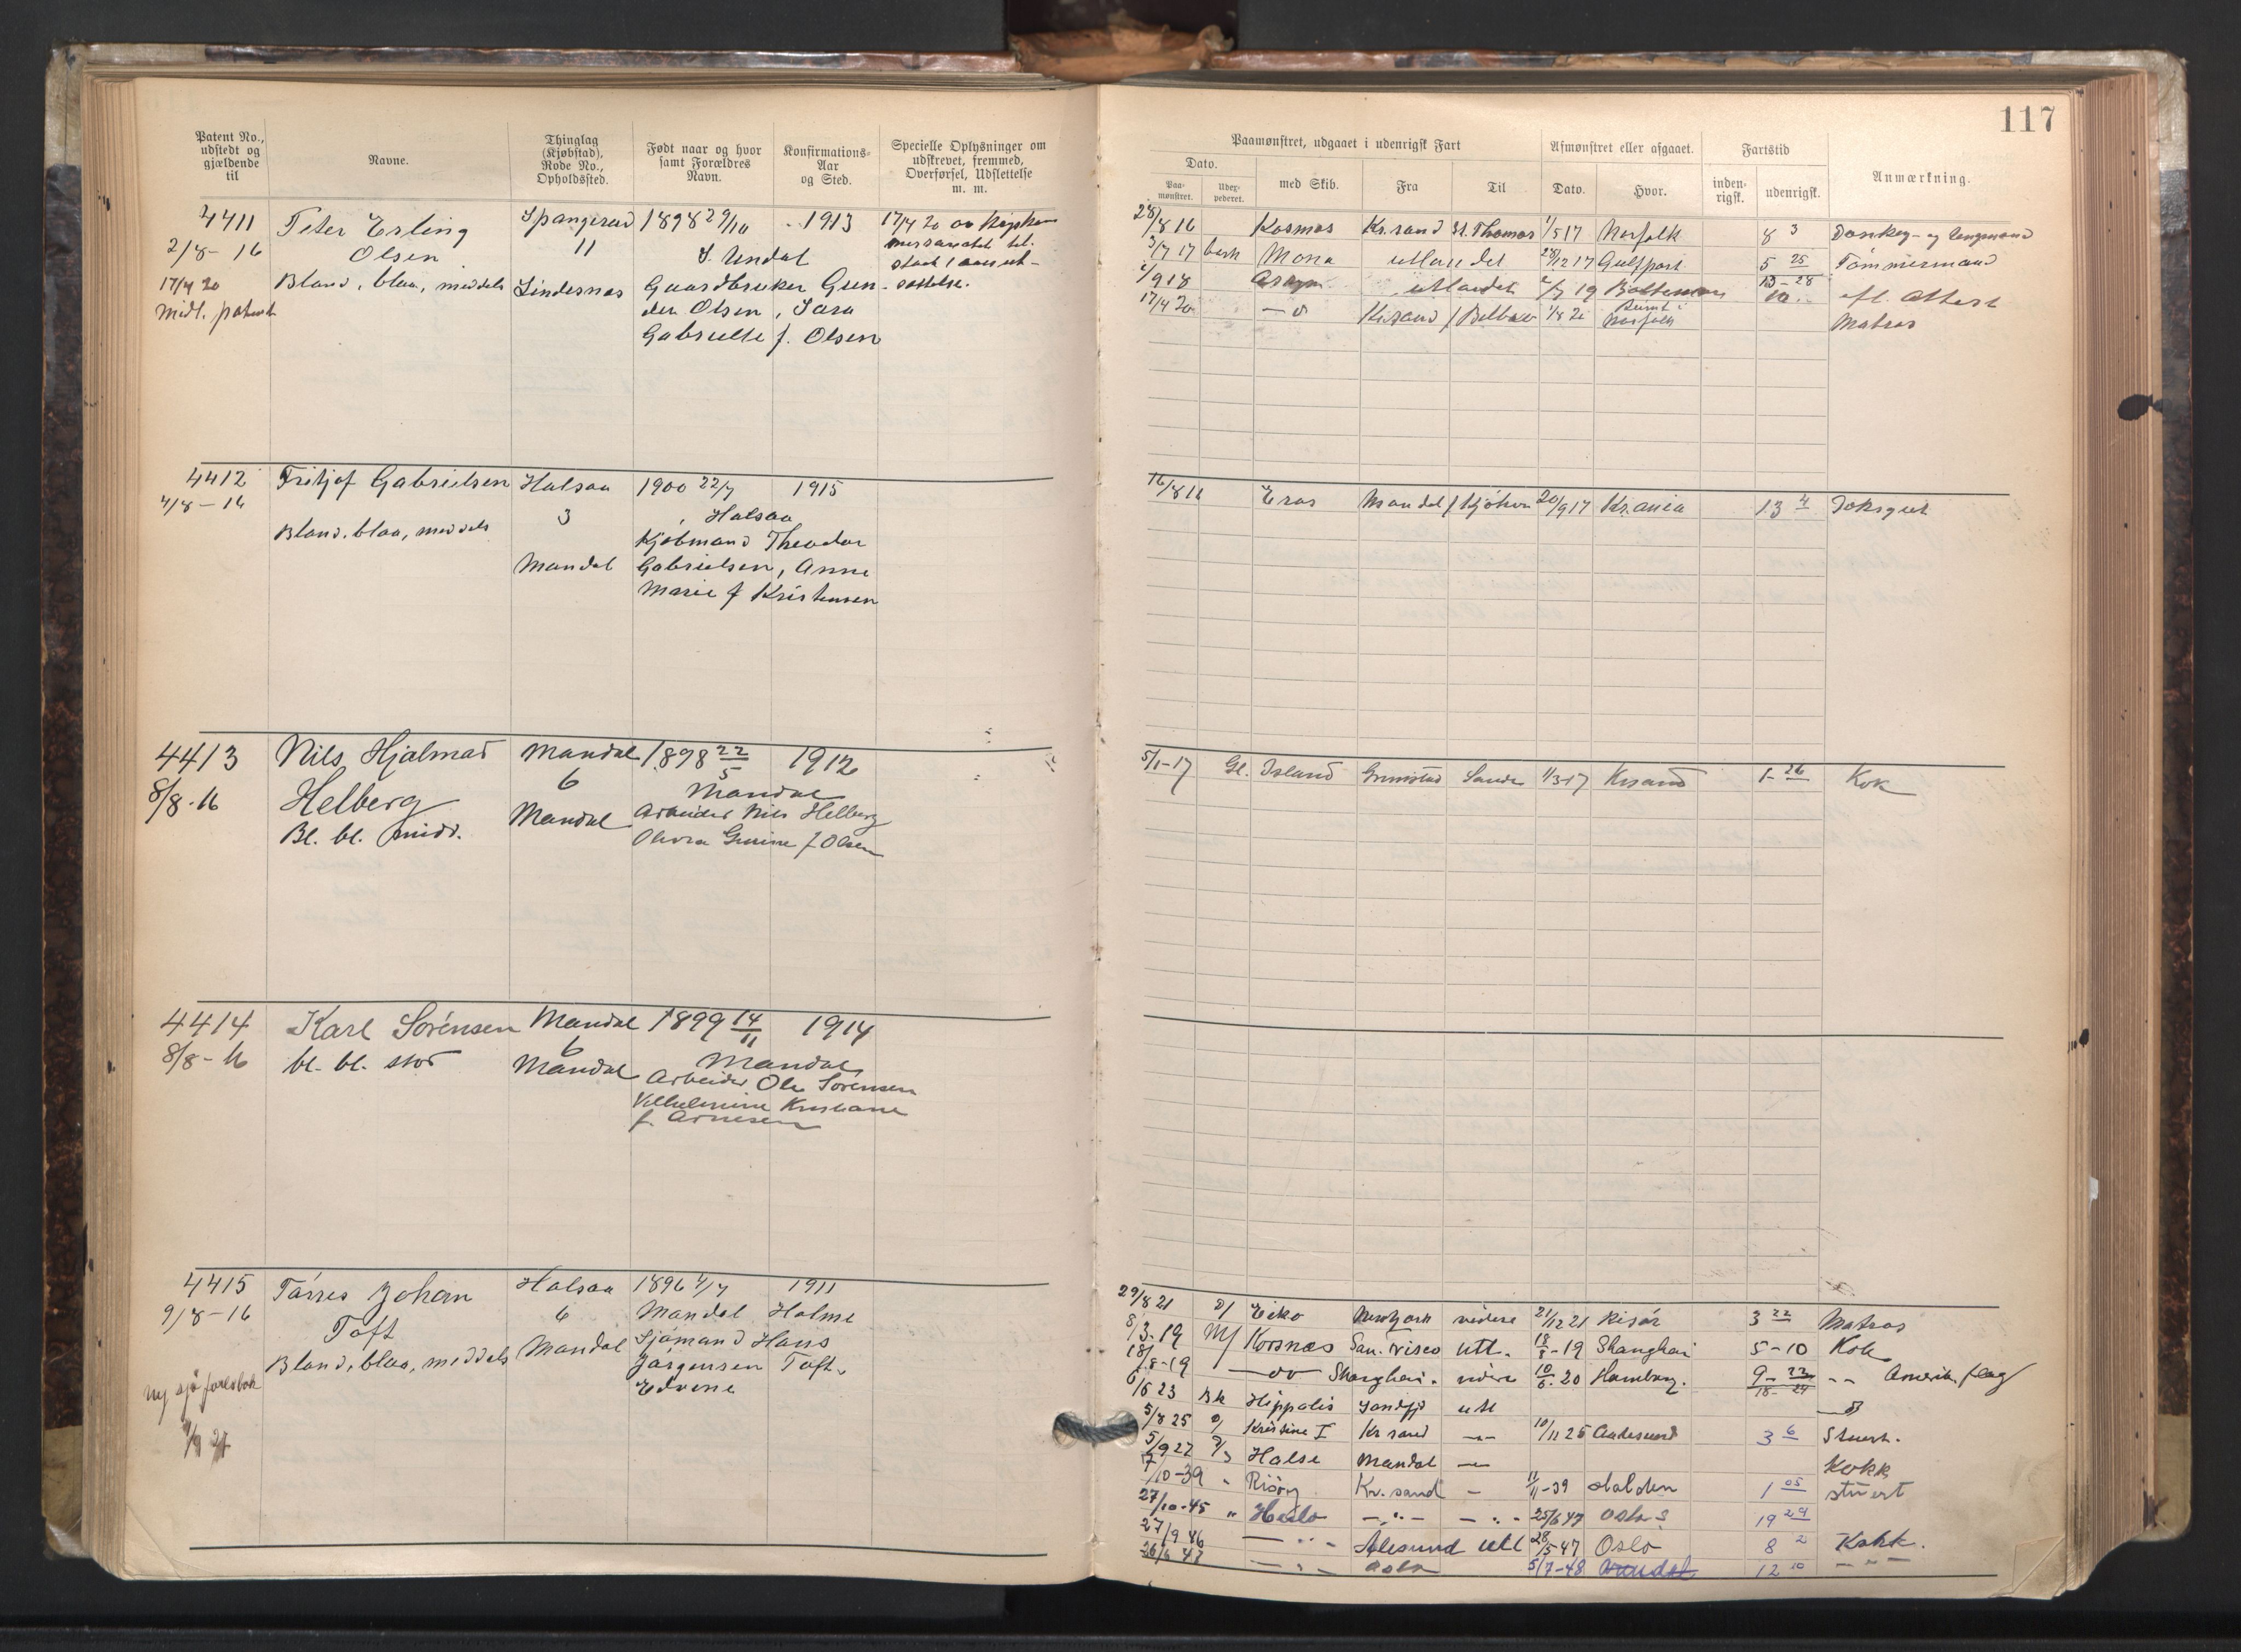 117
Patent No., udstedt og gjældende til
Navne.
Thinglag (Kjøbstad), Rode No., Opholdssted.
Født naar og hvor samt Forældres Navn.
Konfirmations-Aar og Sted.
Specielle Oplysninger om udskrevet, fremmed, Overførsel, Udslettelse m. m.
Paamønstret, udgaaet i udenrigsk Fart
Dato.
Paa-mønstret.
Uder-pederet.
med Skib.
Fra
Til
Afmønstret eller afgaaet.
Dato.
Hvor.
Fartstid
inden-rigsk.
udenrigsk.
Anmærkning.
4411 Peter Erling Spangereid 1898 29/10 1913 17/4 20
2/8-16 Olsen 11 S. Undal
17/4 20 Blond, blaa, middels Lindesnæs Gaardbruker Gun-
midl. patent der Olsen, Sara
Gabrielle f. Olsen
28/8 16 Kosmos Kr.sand St. Thomas 1/5 17 Norfolk 8 3 Donkey- og
3/7 17 bark Mona utlandet 28/12 17 Gulfport 5 25 Tømmermand
9 18 utlandet 19 13-28 efl. Attest
17/4 20 Kr.sand 1/8 20 Norfolk 10 Matros
4412 Fritjof Gabrielsen Halsaa 1900 22/7 1915
4/8-16 3 Halsaa
Blond, blaa, middels Kjøbmand Theodor
Mandal Gabrielsen, Anne
Marie f Kristensen
16/8 16 Eros Mandal 20/9 17 Kr.ania 13 4 Dæksgut
4413 Nils Hjalmar Mandal 1898 22/5 1912
8/8-16 Helberg 6 Mandal
Bl. bl. midd. Mandal Arbeider Nils Helberg
Gurine f Olsen
5/1-17 Gl. Island Grimstad 1/3-17 Krsand 1-26 Kok
4414 Karl Sørensen Mandal 1899 14/11 1914
8/8-16 bl. bl. stor 6 Mandal
Mandal Arbeider Ole Sørensen
Vilhelmine Kristiane
f. Arnesen
4415 Tørres Johan Halsaa 1896 4/7 1911
9/8-16 Toft 6 Mandal Holme
Blond, blaa, middels Mandal Sjømand Hans
Jørgensen Toft,
ny sjøfartsbok Edvine
29/8 21 D/ Eiko Newyork videre 21/12 21 Risør 3 22 Matros
8/3-19 M/ Korsnæs San. Frisco utl. 18/8-19 Shanghai 5-10 Kok
18/8-19 do Shanghai. videre 10/6-20 Hamburg. 9-22 Amerik. flag
18-24
6/6 23 Bk Hippalos Sandfj utl
5/8 25 D/ Kristine I Kr sand 10/11 25 3 6 Stuert.
5/9 27 D/S Halse Mandal Kokk
7/10-39 " Risøy Kr. sand - 11/11-39 Halden 1 05 stuert
27/10-45 " 25/6 47 Oslo 19 29
27/9 46 Ålesund utl 28/5 47 Oslo 8 2 Kokk.
26/6 47 Oslo 5/7-48 12 10